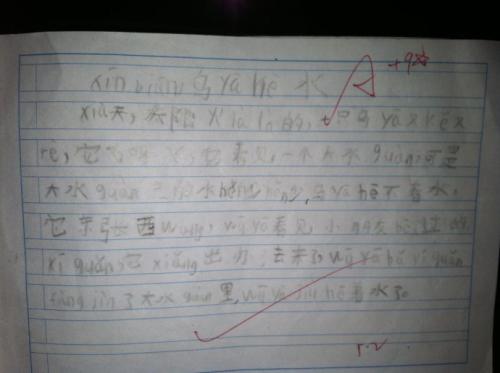 xīn biān 乌 yā hē 水 A +9
天,太阳 火 là là 的,一只乌 yā
rè,它飞呀飞,它看见一个大水 guàn,可是
大水 guàn 的水 hěn hěn,乌 yā hē 不着水,
它东张西 wàng,wū yā 看见小朋友 hē 过的
xī guǎn,它 xiǎng 出办 法来了,wū yā bǎ xī guǎn
fàng jìn 了大水 guàn 里,wū yā jiù hē 着水了。